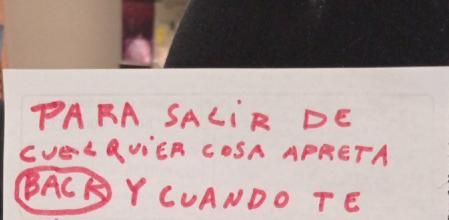 PARA SALIR DE
CUALQUIER COSA APRETA
BACK Y CUANDO TE